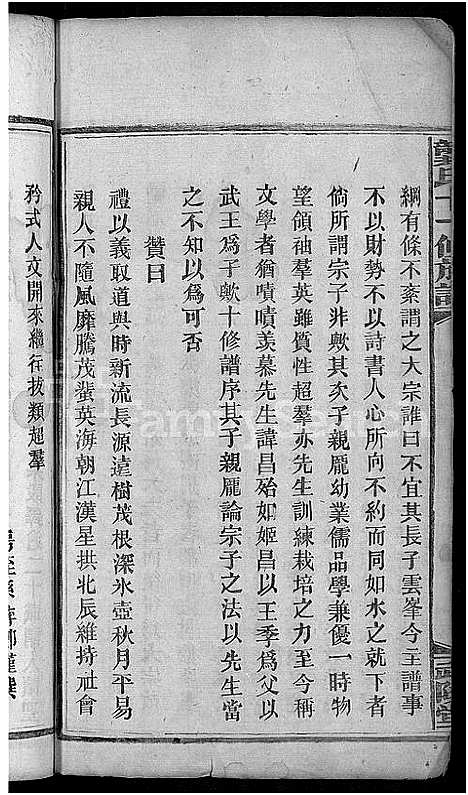 龔氏十一修族譜
綱有條不紊謂之大宗誰曰不宜其長子雲峯今主譜事
不以財勢不以詩書人心所向不約而同如水之就下者
倘所謂宗子非歟其次子親龐幼業儒品學兼優一時物
望領袖羣英雖質性超羣亦先生訓練栽培之力至今稱
文學者猶嘖嘖羡慕先生諱昌殆如姬昌以王季爲父以
武王爲子歟十修譜序其子親龐論宗子之法以先生當
之不知以爲可否
贊曰
禮以義取道與時新流長源遠樹茂根深氷壺秋月平易
親人不隨風靡騰茂蜚英海朝江漢星拱北辰維持社會
矜式人文開來繼往拔類超羣